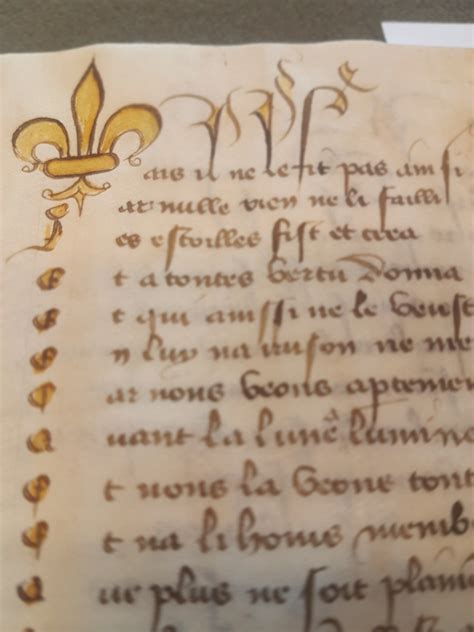 ais il ne le fit pas ainsi
ar nulle rien ne li failli
es estoilles fist et crea
E t a toutes vertu donna
E t qui aussi ne le veust
E n luy na raison ne me
C ar nous veons apertemen
Q uant la lune lumine
E t nous la veons tout
E t na li homs memb
Q ue plus ne soit plain